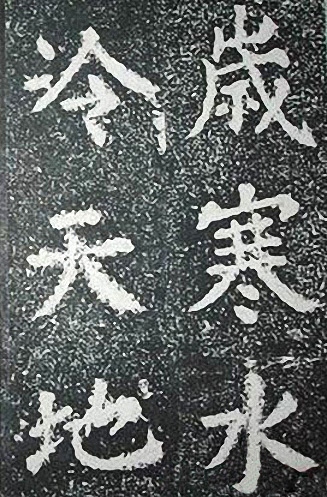 歳寒水
冷天地